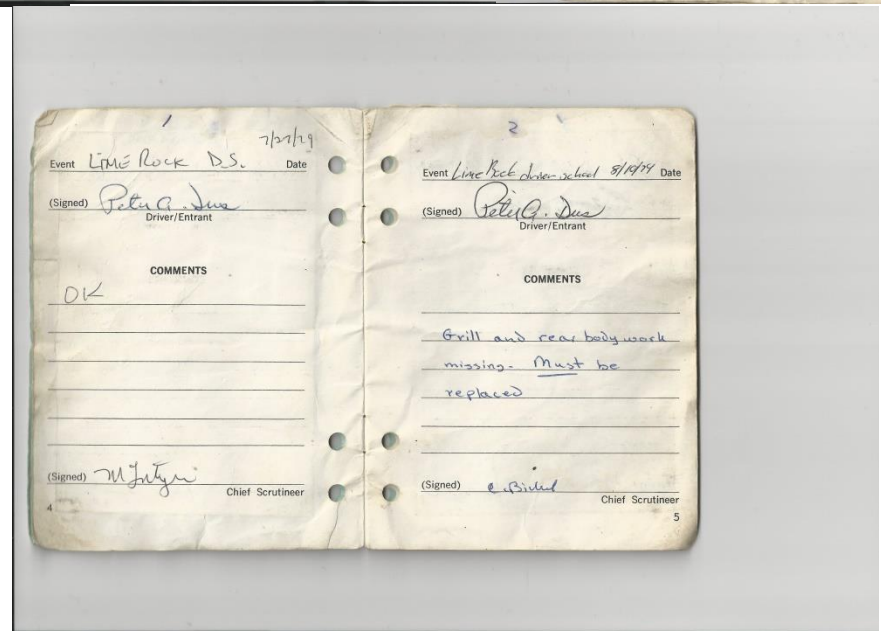 1
7/27/79
Event LIME ROCK D.S. Date
(Signed) Peter A. Dus
Driver/Entrant
COMMENTS
OK
(Signed)
Chief Scrutineer
4
2
Event Lime Rock driver school 8/10/79 Date
(Signed) Peter A. Dus
Driver/Entrant
COMMENTS
Grill and rear bodywork
missing. Must be
replaced
(Signed)
Chief Scrutineer
5